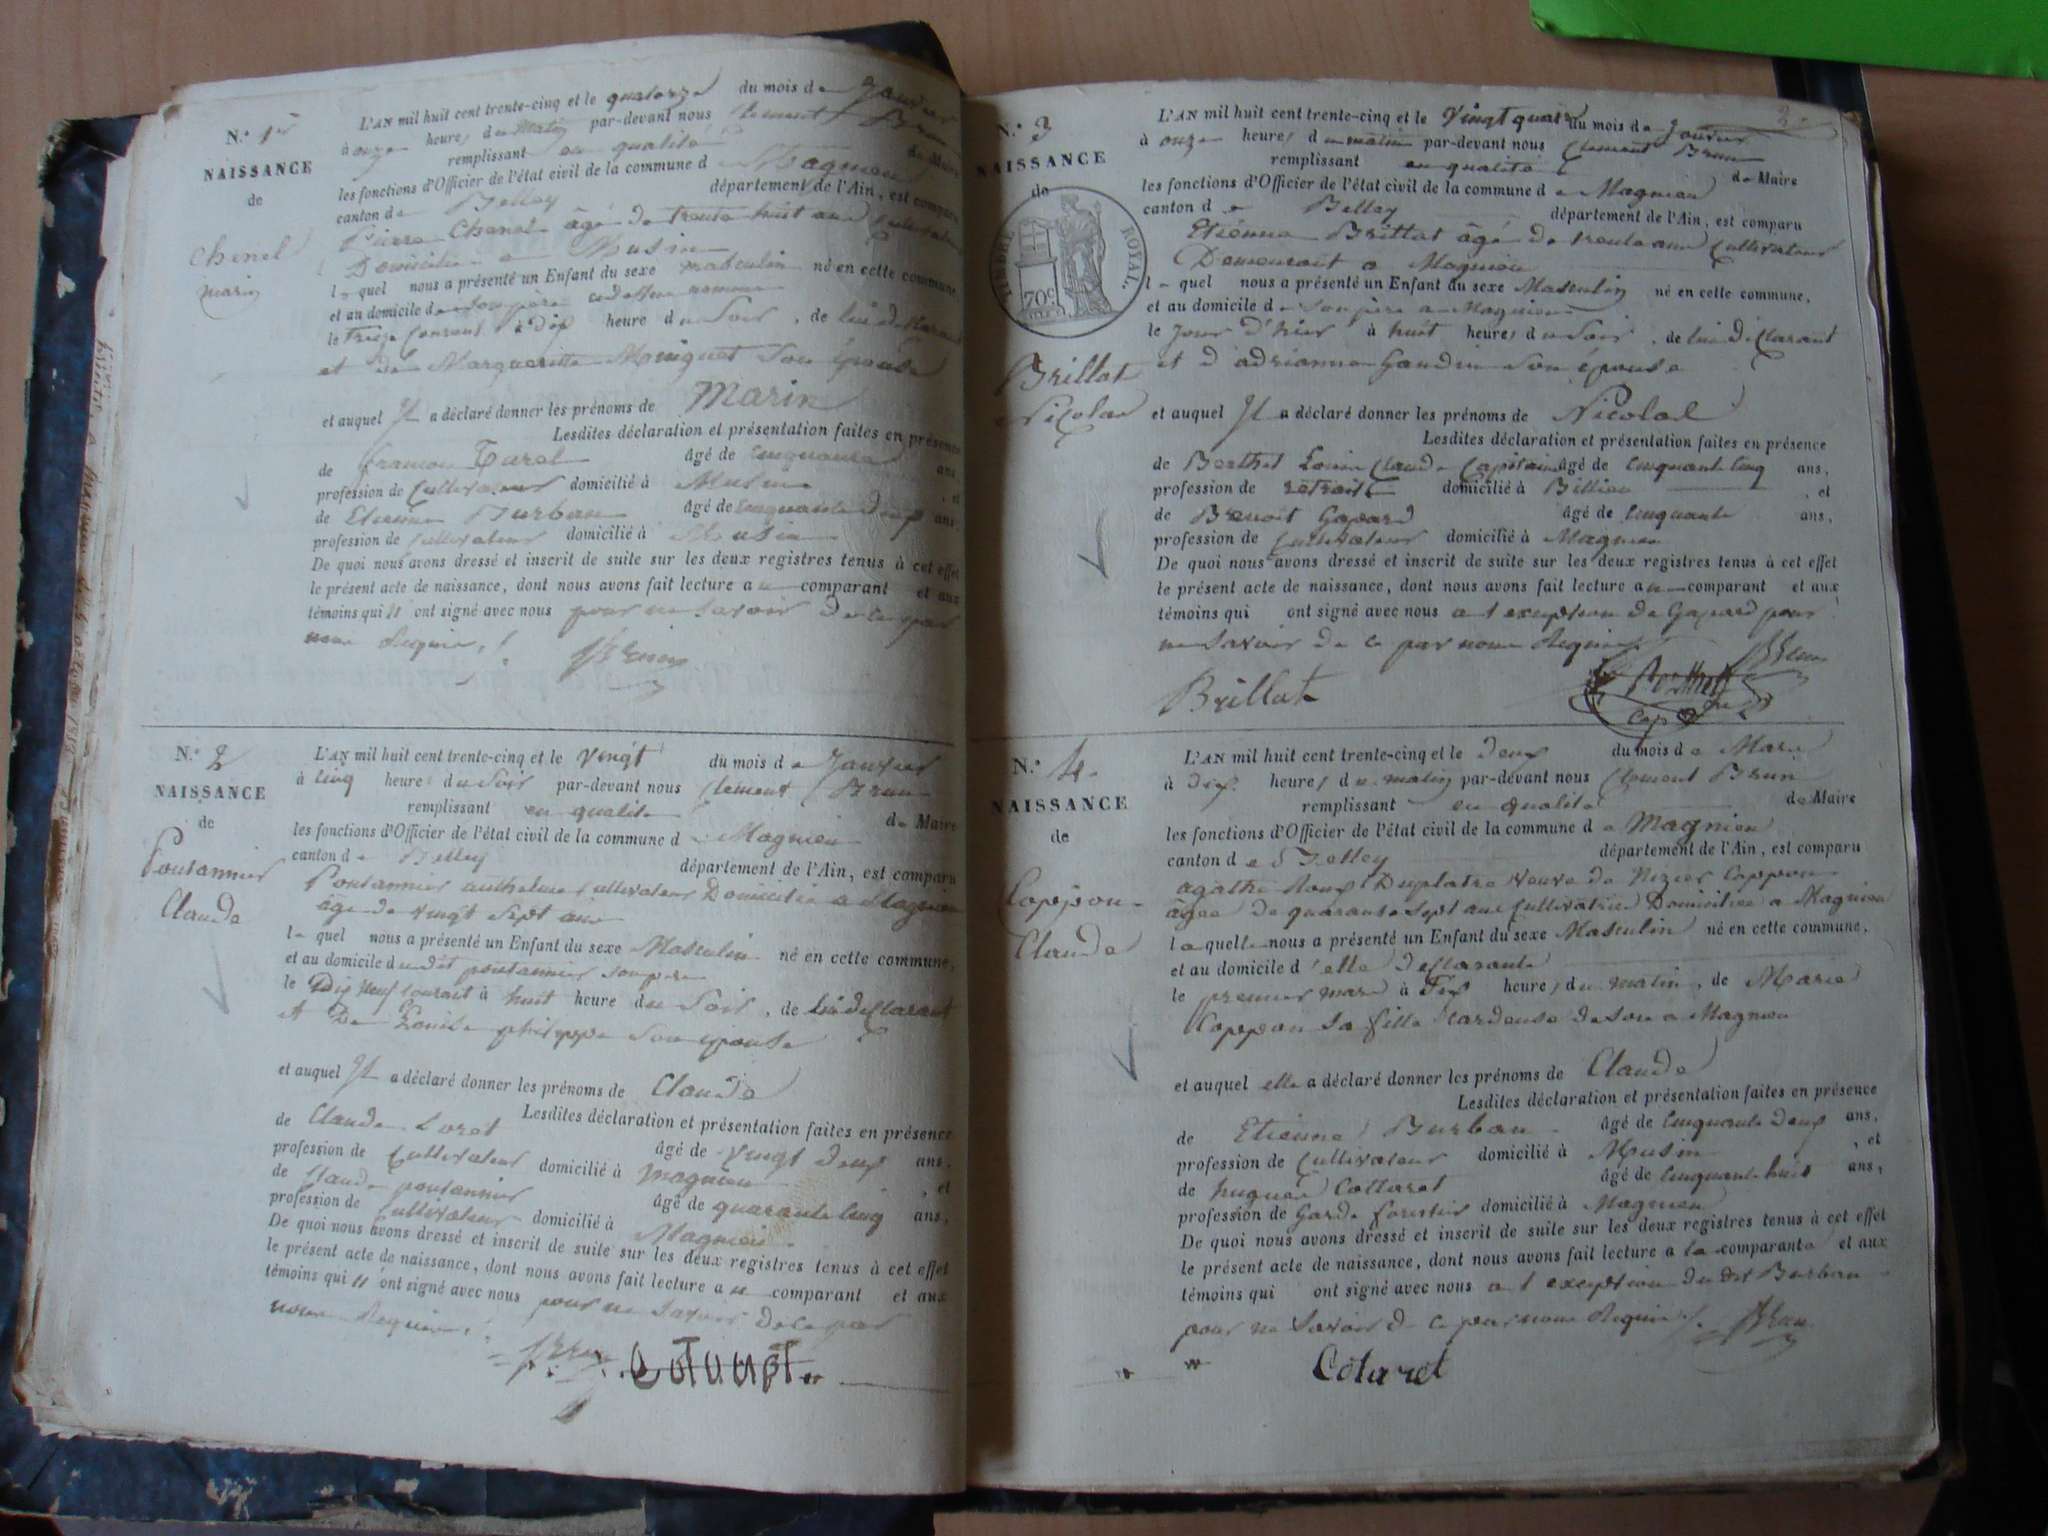 N.º 1er
NAISSANCE
de
Chenel
marin
L'AN mil huit cent trente-cinq et le quatorze du mois de Janvier
à onze heures du Matin par-devant nous Clement Brun
remplissant en qualité de Maire
les fonctions d'Officier de l'état civil de la commune de Magnieu
canton de Belley département de l'Ain, est comparu
Pierre Chenel âgé de trente huit ans Cultivateur
Domicilié a Musin
lequel nous a présenté un Enfant du sexe masculin né en cette commune,
et au domicile de son père
le treize Courant à dix heure du Soir, de lui déclarant
et de Margueritte Moniguet Son épouse
et auquel Il a déclaré donner les prénoms de Marin
Lesdites déclaration et présentation faites en présence
de françois Turel âgé de cinquante ans,
profession de Cultivateur domicilié à Musin, et
de Etienne Burban âgé de cinquante deux ans,
profession de Cultivateur domicilié à Musin
De quoi nous avons dressé et inscrit de suite sur les deux registres tenus à cet effet
le présent acte de naissance, dont nous avons fait lecture au comparant et aux
témoins qui n ont signé avec nous pour ne Savoir de ce par
nous Requis
Brun
N.º 2
NAISSANCE
de
Pontannier
Claude
L'AN mil huit cent trente-cinq et le vingt du mois de Janvier
à cinq heures du Soir par-devant nous Clement Brun
remplissant en qualité de Maire
les fonctions d'Officier de l'état civil de la commune de Magnieu
canton de Belley département de l'Ain, est comparu
Pontannier anthelme Cultivateur Domicilié a Magnieu
âgé de vingt Sept ans
lequel nous a présenté un Enfant du sexe Masculin né en cette commune,
et au domicile dudit pontannier son père
le Dix Neuf Courant à huit heure du Soir, de lui déclarant
et De Louise philippe Son epouse
et auquel Il a déclaré donner les prénoms de Claude
Lesdites déclaration et présentation faites en présence
de Claude Loret âgé de vingt deux ans,
profession de Cultivateur domicilié à magnieu, et
de Claude pontannier âgé de quarante cinq ans,
profession de Cultivateur domicilié à Magnieu
De quoi nous avons dressé et inscrit de suite sur les deux registres tenus à cet effet
le présent acte de naissance, dont nous avons fait lecture au comparant et aux
témoins qui n ont signé avec nous pour ne Savoir de ce par
nous Requis
Brun
N.º 3
NAISSANCE
de
TIMBRE ROYAL.
70c
Brillat
Nicolas
L'AN mil huit cent trente-cinq et le vingt quatre du mois de Janvier
à onze heures du matin par-devant nous Clement Brun
remplissant en qualité de Maire
les fonctions d'Officier de l'état civil de la commune de Magnieu
canton de Belley département de l'Ain, est comparu
Etienne Brillat âgé de trente ans Cultivateur
Demeurant a Magnieu
lequel nous a présenté un Enfant du sexe Masculin né en cette commune,
et au domicile de son père a Magnieu
le Jour d'hier à huit heures du Soir, de lui Déclarant
et d'adrianne Gaudin Son épouse
et auquel Il a déclaré donner les prénoms de Nicolas
Lesdites déclaration et présentation faites en présence
de Berthet Louis Claude Capitaine âgé de cinquante cinq ans,
profession de retraité domicilié à Billieu, et
de Benoit Gapard âgé de cinquante ans,
profession de Cultivateur domicilié à Magnieu
De quoi nous avons dressé et inscrit de suite sur les deux registres tenus à cet effet
le présent acte de naissance, dont nous avons fait lecture au comparant et aux
témoins qui ont signé avec nous a l exception de Gapard pour
ne Savoir de ce par nous Requis
Brun
Brillat Berthet
N.º 4
NAISSANCE
de
Coppon
Claude
L'AN mil huit cent trente-cinq et le deux du mois de Mars
à Dix heures du matin par-devant nous Clement Brun
remplissant en qualité de Maire
les fonctions d'Officier de l'état civil de la commune de Magnieu
canton de Belley département de l'Ain, est comparu
agathe Roux Duplatre Veuve de Nizier Coppon
âgée de quarante Sept ans Cultivatrice Domiciliée a Magnieu
laquelle nous a présenté un Enfant du sexe Masculin né en cette commune,
et au domicile d'elle déclarante
le premier mars à Dix heures du matin, de Marie
Coppon sa fille Cardeuse de soie a Magnieu
et auquel elle a déclaré donner les prénoms de Claude
Lesdites déclaration et présentation faites en présence
de Etienne Burban âgé de cinquante deux ans,
profession de Cultivateur domicilié à Musin, et
de hugues Cottaret âgé de cinquante huit ans,
profession de Garde forestier domicilié à Magnieu
De quoi nous avons dressé et inscrit de suite sur les deux registres tenus à cet effet
le présent acte de naissance, dont nous avons fait lecture a la comparante et aux
témoins qui ont signé avec nous a l exception dudit Burban
pour ne Savoir de ce par nous Requis Brun
Cotaret